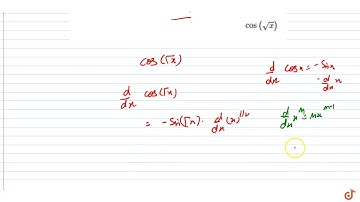 cos (√x)
cos (√x)
d/dx cos (√x)
= - Sin (√x) · d/dx (x)^1/2
d/dx cos x = - Sin x
· d/dx x
d/dx x^n = nx^n-1